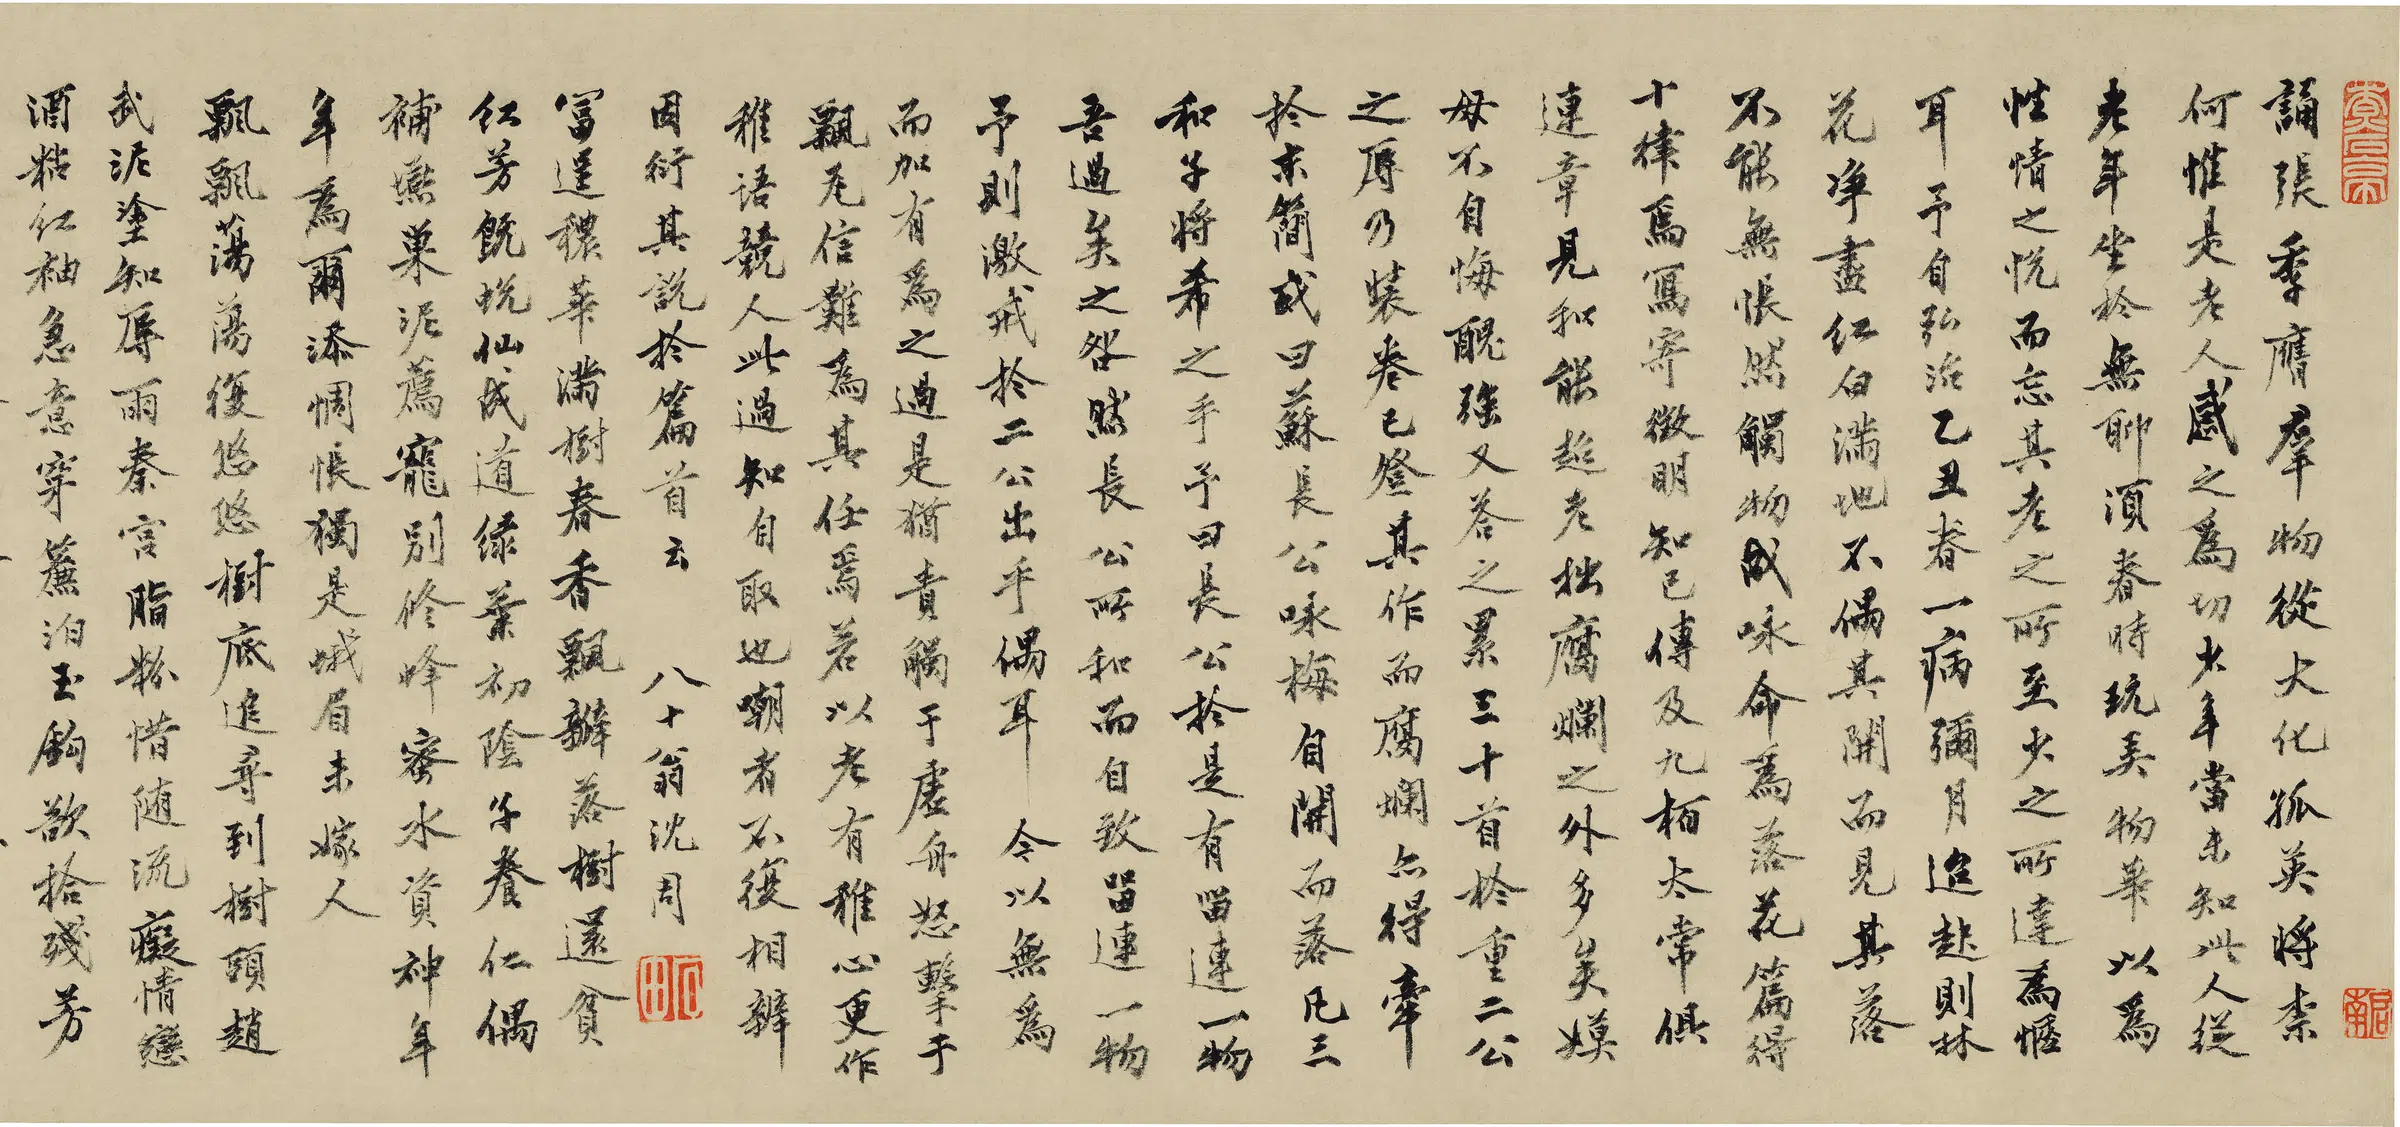 誦張季鷹群物從大化孤英將柰
何惟是老人感之為切少年當未知此人從
老年坐於無聊湏春時玩美物華以為
性情之悅而忘其老之所至少之所達為惬
耳予自弘治乙丑春一病彌月迨起則林
花淨盡紅白滿地不偶其開而見其落
不能無悵然觸物成咏命為落花篇得
十律焉寫寄徵明知已傳及九栢太常俱
連章見和能超老拙腐爛之外多矣嫫
母不自悔醜強又答之累三十首於重二公
之辱乃裝卷已登其作而腐爛亦得牽
於末簡或曰蘇長公咏梅自開而落凡三
和子將希之乎予曰長公於是有留連一物
吾過矣之咎然長公所和而自致留連一物
予則激戒於二公出乎偶耳 今以無為
而加有為之過是猶責觸于虛舟怒擊于
飄瓦信難為其任焉若以老有稚心更作
稚語競人此過知自取也嘲者不復相辨
因衍其說於篇首云 八十翁沈周
富逞穠華滿樹春香飄瓣落樹還貧
紅芳既蛻仙成道綠葉初陰子養仁偶
補燕巢泥薦寵別修蜂蜜水資神年
年為爾添惆悵獨是娥眉未嫁人
飄飄蕩蕩復悠悠樹底追尋到樹頭趙
武泥塗知辱雨秦宮脂粉惜随流癡情戀
酒粘紅袖急意穿簾泊玉鉤欲拾殘芳